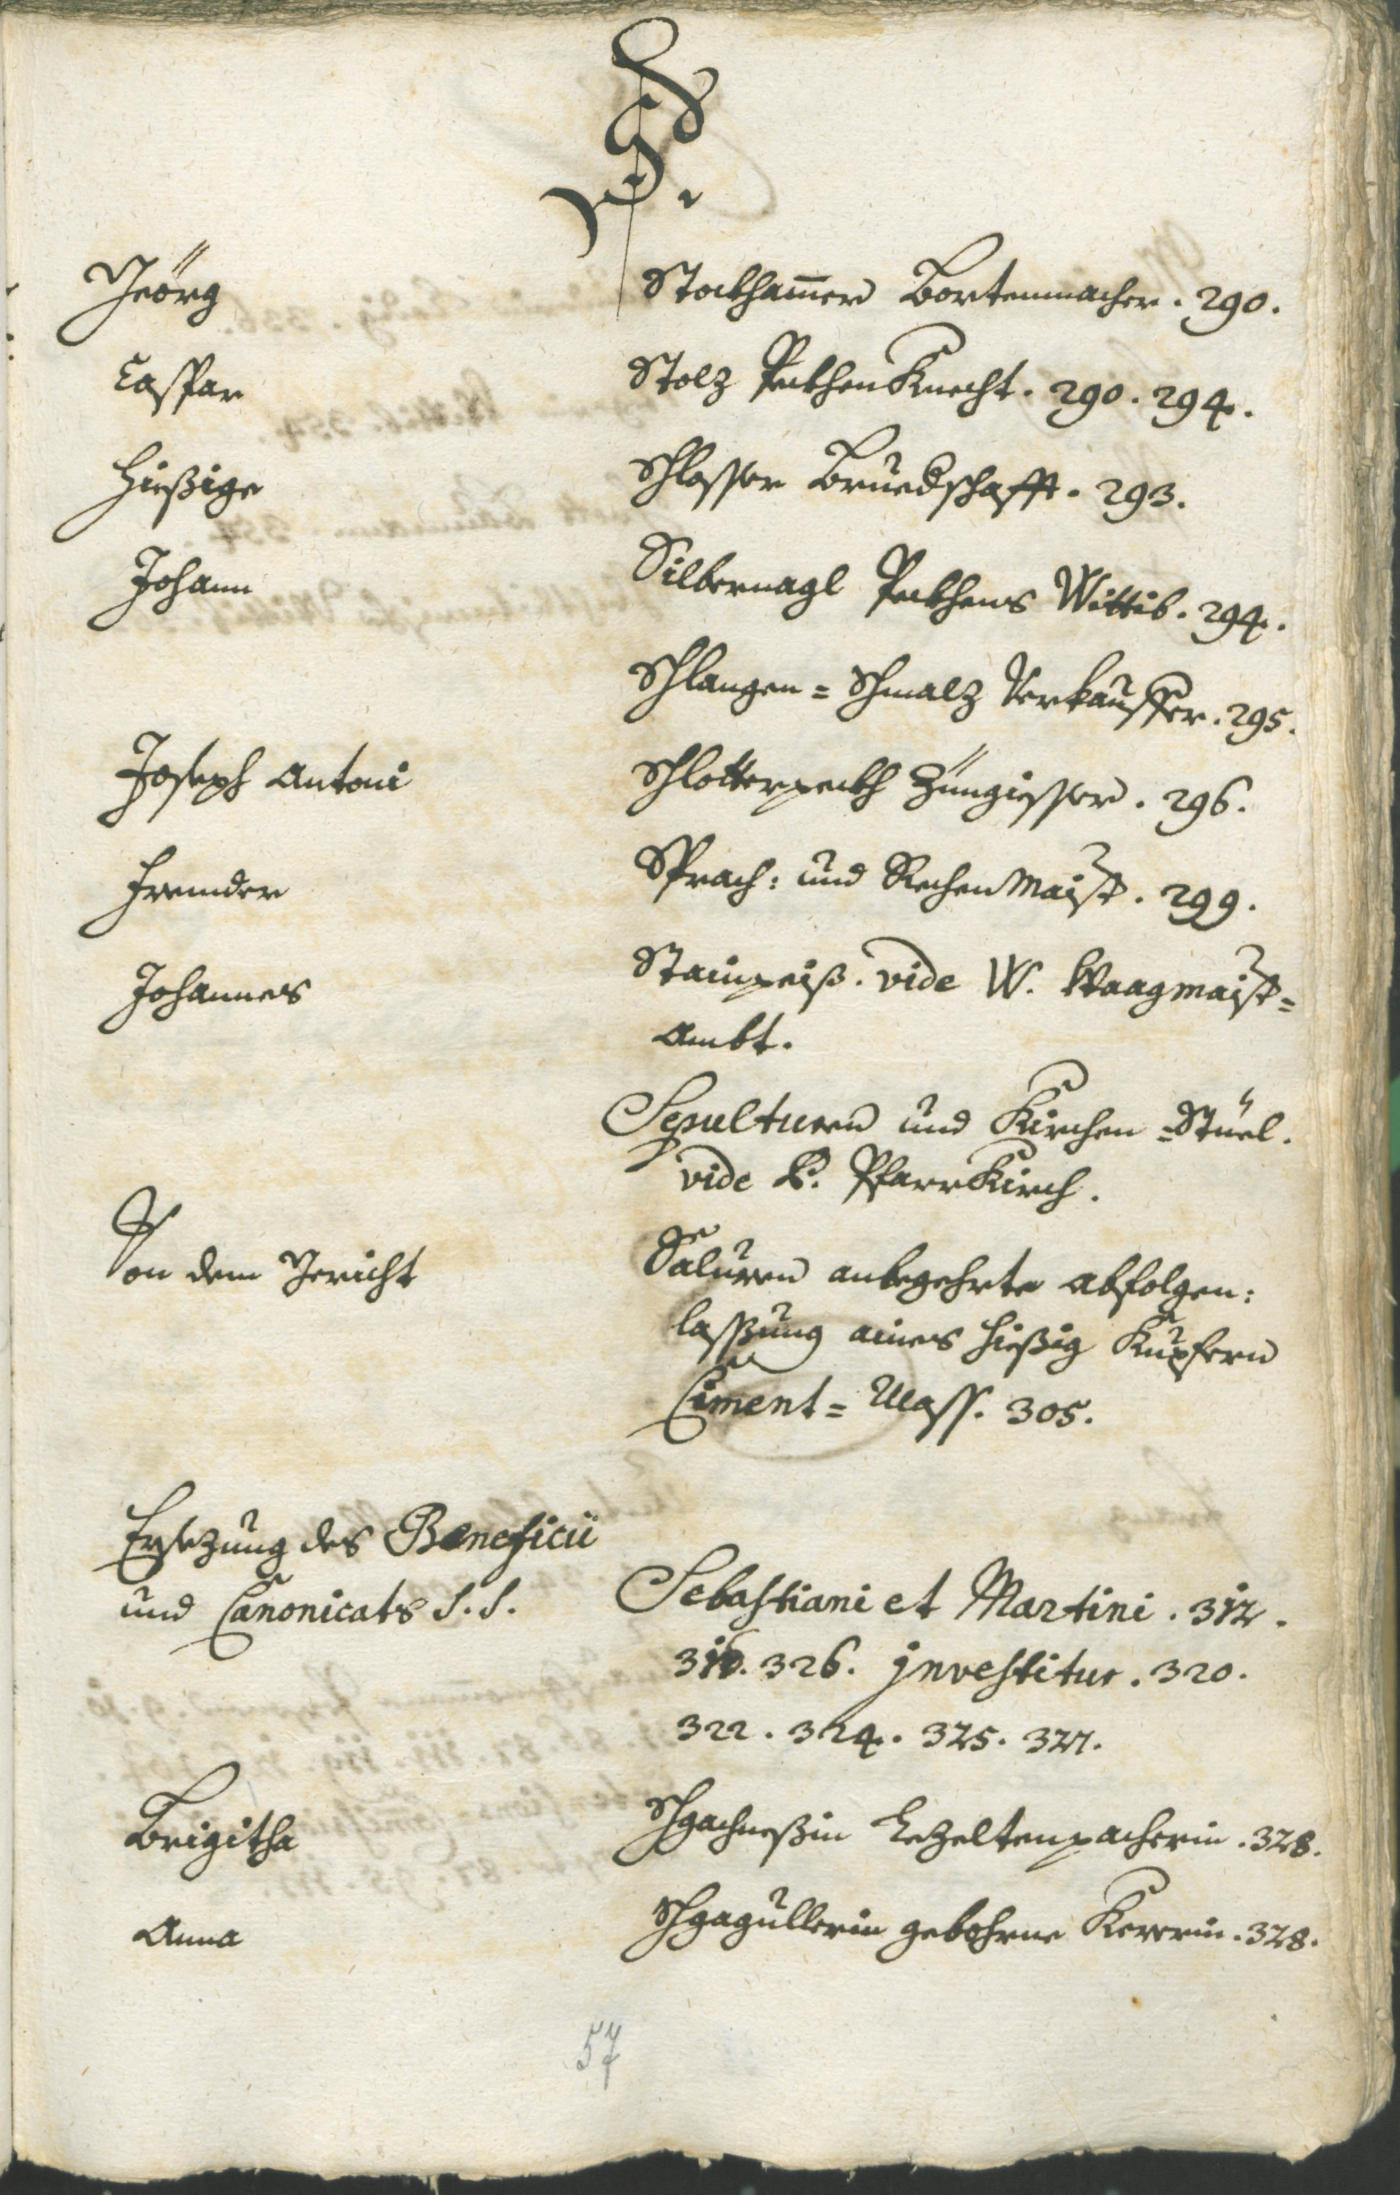 S.
Jeörg Stockhamer Bortenmacher. 290.
Caspar Stolz Peckhen Knecht. 290. 294.
Hießige Schlosser Bruedschafft. 293.
Johann Silbernagl Peckhens Wittib. 294.
Schlangen= Schmalz Verkauffer. 295.
Joseph Antoni Schlotterpeckh Züngiesser. 296.
Frembder Sprach: und Rechen Maist. 299.
Johannes Stainpeiß. vide W. Waagmaist=
Ambt.
Sepulturen und Kirchen=Stüel.
vide P. Pfarr Kirch.
Von dem Gericht Salurn anbegehrte abfolgen:
lassung aines hießig Kupfern
Ciment= Mass. 305.
Ersezung des Beneficii
und Canonicats S. S. Sebastiani et Martini. 312.
316. 326. jnvestitur. 320.
322. 324. 325. 327.
Brigitha Lezeltenpacherin. 328.
Anna gebohrne Kererin. 328.
57